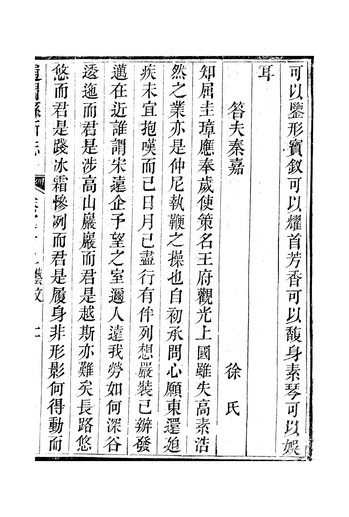 可以鑒形寳釵可以耀首芳香可以馥身素琴可以娱
耳
答夫秦嘉
徐氏
知屈圭璋應奉歲使策名王府觀光上國雖失高素浩
然之業亦是仲尼執鞭之操也自初承問心願東還廹
疾未宜抱嘆而已日月已盡行有伴列想嚴裝已辦發
邁在近誰謂宋遠企予望之室邇人遠我勞如何深谷
逶迤而君是涉高山巖巖而君是越斯亦難矣長路悠
悠而君是踐冰霜慘冽而君是履身非形影何得動而